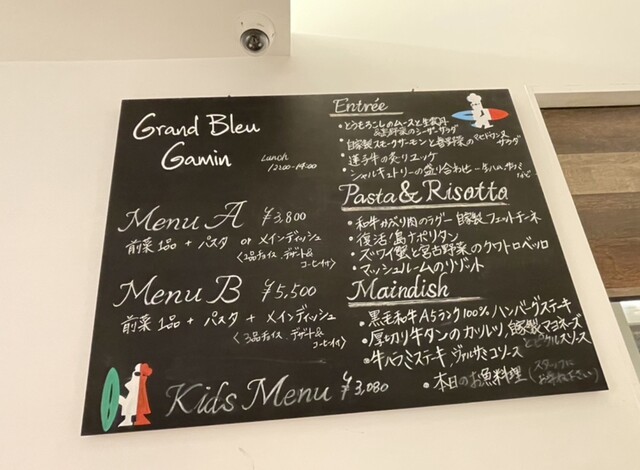 Grand Bleu
Gamin
Lunch
12:00-14:00
Menu A ¥3,800
前菜1品 + パスタ or メインディッシュ
<2品チョイス、デザート&
コーヒー付>
Menu B ¥5,500
前菜1品 + パスタ + メインディッシュ
<3品チョイス、デザート&
コーヒー付>
Kids Menu ¥3,080
Entrée
・とうもろこしのムースと生雲丹
シーザーサラダ
・自家製スモークサーモンと島野菜の
サラダ
牛の炙りユッケ
・シャルキュトリーの盛り合わせ
Pasta & Risotto
・和牛かぶり肉のラグー 自家製フェットチーネ
・復活!島ナポリタン
・ズワイ蟹と宮古野菜のクワトロペッロ
・マッシュルームのリゾット
Maindish
・黒毛和牛A5ランク100%ハンバーグステーキ
・厚切り牛タンのカツレツ、自家製マヨネーズ
とピクルスソース
・牛ハラミステーキ、ヴァルサミコソース
・本日のお魚料理 (スタッフに
お尋ね下さい)